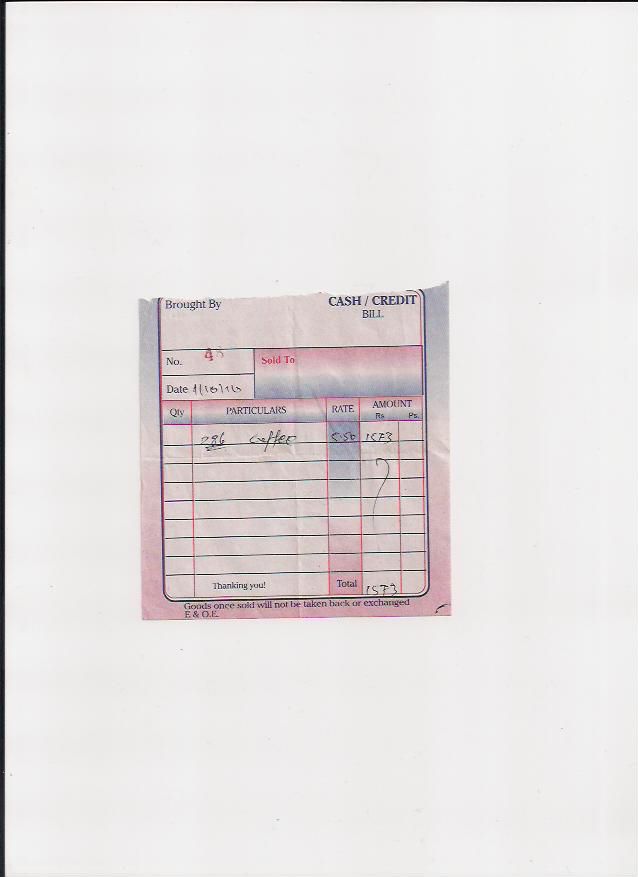 Brought By CASH / CREDIT
BILL
No. 48
Sold To
Date 1/10/16
Qty PARTICULARS RATE AMOUNT
Rs Ps.
286 Coffee 5.50 1573
Thanking you! Total 1573
Goods once sold will not be taken back or exchanged
E & O.E.